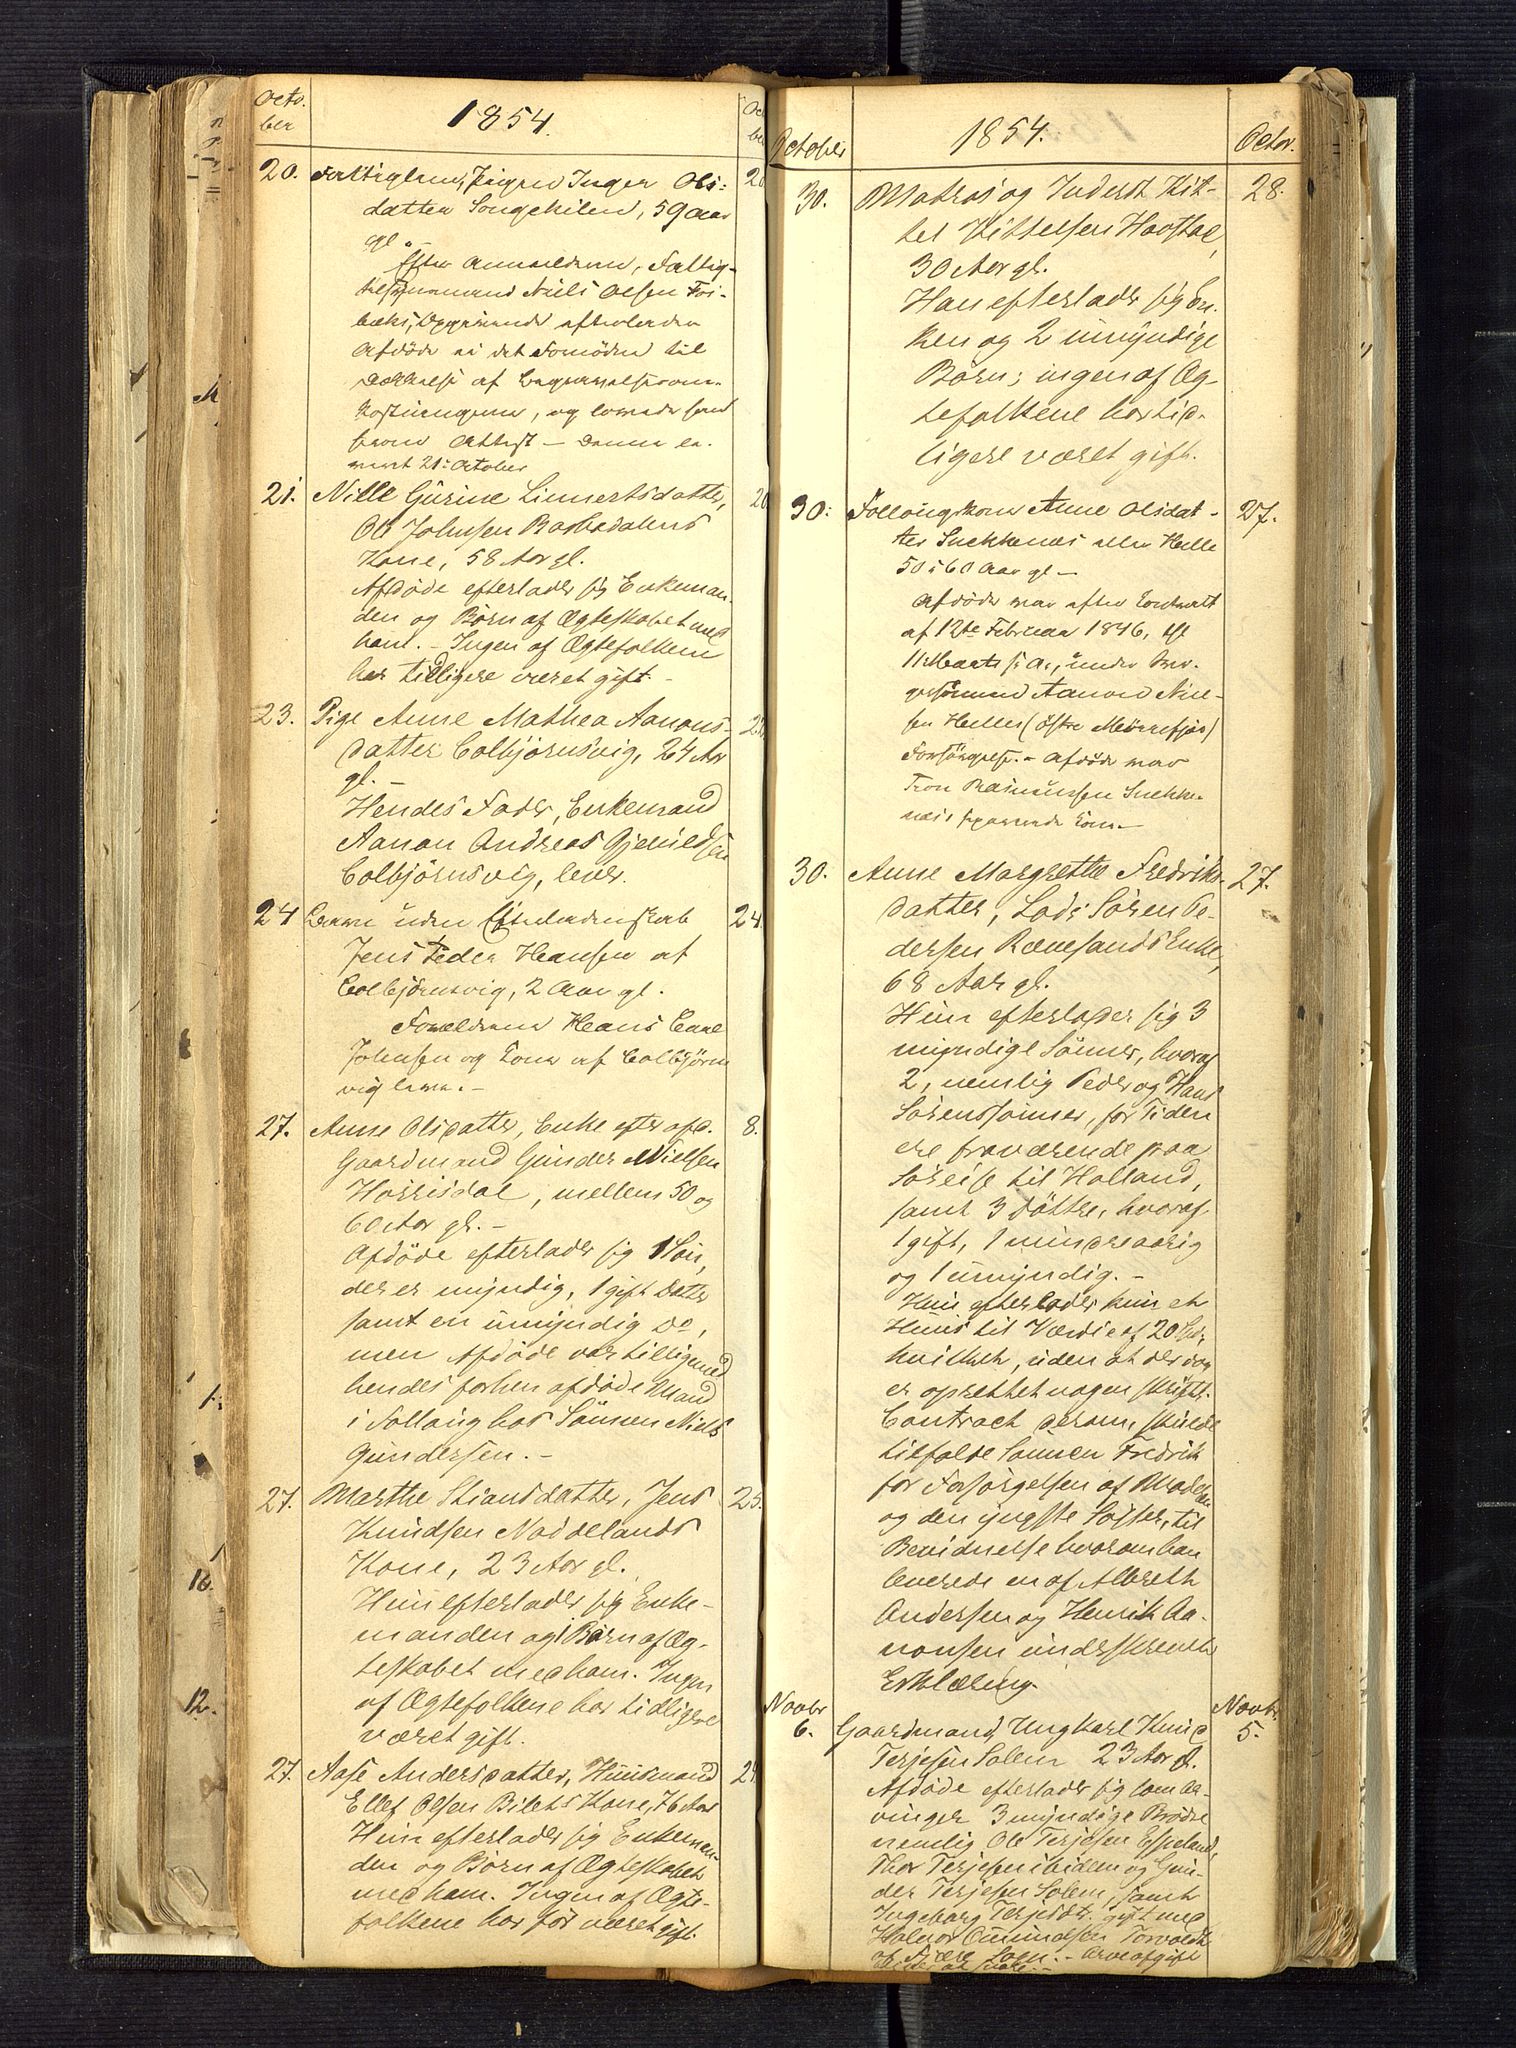 Octo-
ber
1854.
Oct
ber
20. Fattiglem, Pigen Inger Ols- 20
datter Songekilen, 59 Aar
gl. -
Efter Anmeldem, Fattig-
Niels Olsen
efterlader
Afdøde ei det Fornødne til
Dækkelse af Begravelsesom-
kostningerne, og
Attest - Denne
21: October
21. Nille Gurine Linnertsdatter, 20
Ole Johnsen Barbodalens
Kone, 58 Aar gl.
Afdøde efterlader sig Enkeman-
den og Børn af Ægteskabet med
ham. - Ingen af Ægtefolkene
har tidligere været gift. -
23. Pige Anne Mathea Aanons- 22.
datter Colbjørnsvig, 24 Aar
gl. -
Hendes Fader, Enkemand
Aanon Andreas Gjeruldsen
Colbjørnsvig, lever.
24 Barn uden Efterladenskab 24.
Jens Peder Hansen af
Colbjørnsvig, 2 Aar gl.
Forældrene Hans
Johnsen og Kone af Colbjørns
vig leve. -
27. Anne Olsdatter, Enke efter afd. 8.
Gaardmand Gunder Nielsen
Harrisdal, mellem 50 og
60 Aar gl. -
Afdøde efterlader sig 1 Søn,
der er myndig, 1 gift Datter
samt en umyndig Do,
men Afdøde var tilligemed
hendes forhen afdøde Mand
i Follaug hos Sønnen Niels
Gundersen. -
27. Marthe Stiansdatter, Jens 25.
Knudsen Nødelands
Kone, 23 Aar gl.
Hun efterlader sig Enke-
manden og 1 Børn af Æg-
teskabet med ham. Ingen
af Ægtefolkene har tidligere
været gift.
27. Aase Andersdatter, Huusmand 24.
Ellef Olsen Bilets Kone, 76 Aar
Hun efterlader sig Enkeman-
den og Børn af Ægteskabet
med ham. Ingen af Ægte-
folkene har før været gift.
October
1854.
Octor.
30. Matros og Inderst Kit- 28.
tel Kittelsen Havstad,
30 Aar gl.
Han efterlader sig En-
ken og 2 umyndige
Børn; ingen af Æg-
tefolkene har tid-
ligere været gift.
30: Follougskone Anne Olsdat- 27.
ter Snekkenæs eller Helle
50 à 60 Aar gl -
Afdøde var efter Contract
af 12te Februar 1846,
11 Marts s. A., under
Aanon Niel-
sen Helles (østre Moorefjær)
Forsørgelse. - Afdøde var
Tron Rasmussen Snekke-
næs's Kone. -
30. Anne Margrethe Fredriks- 27.
datter, Lods Søren Pe-
dersen Rævesands Enke,
68 Aar gl.
Hun efterlader sig 3
myndige Sønner, hvoraf
2, nemlig Peder og Hans
Sørenssønner, for Tiden
ere fraværende paa
Søreise til Holland,
samt 3 Døttre, hvoraf
1 gift, 1 mindreaarig
og 1 umyndig. -
Hun efterlader kun et
Huus til Værdie af 20 Spd.
hvilket, uden at der dog
er oprettet nogen skriftl.
Contract derom, skulde
tilfalde Sønnen Fredrik
for Forsørgelsen af Moderen
og den yngste Søster, til
Bevidnelse hvorom han
leverede en af Albreth
Andersen og Henrik Aa-
nonsen underskreven
Erklæring.
Novbr Novbr.
6. Gaardmand, Ungkarl Knud 5.
Terjesen Solem 23 Aar gl.
Afdøde efterlader sig som Ar-
vinger 3 myndige Brødre
nemlig Ole Terjesen Espeland,
Thor Terjesen ibidem og Gun-
der Terjesen Solem, samt
Ingeborg Terjesdtr. gift med
Halvor Omundsen Torvolds
af Sogn. - Arveafgift